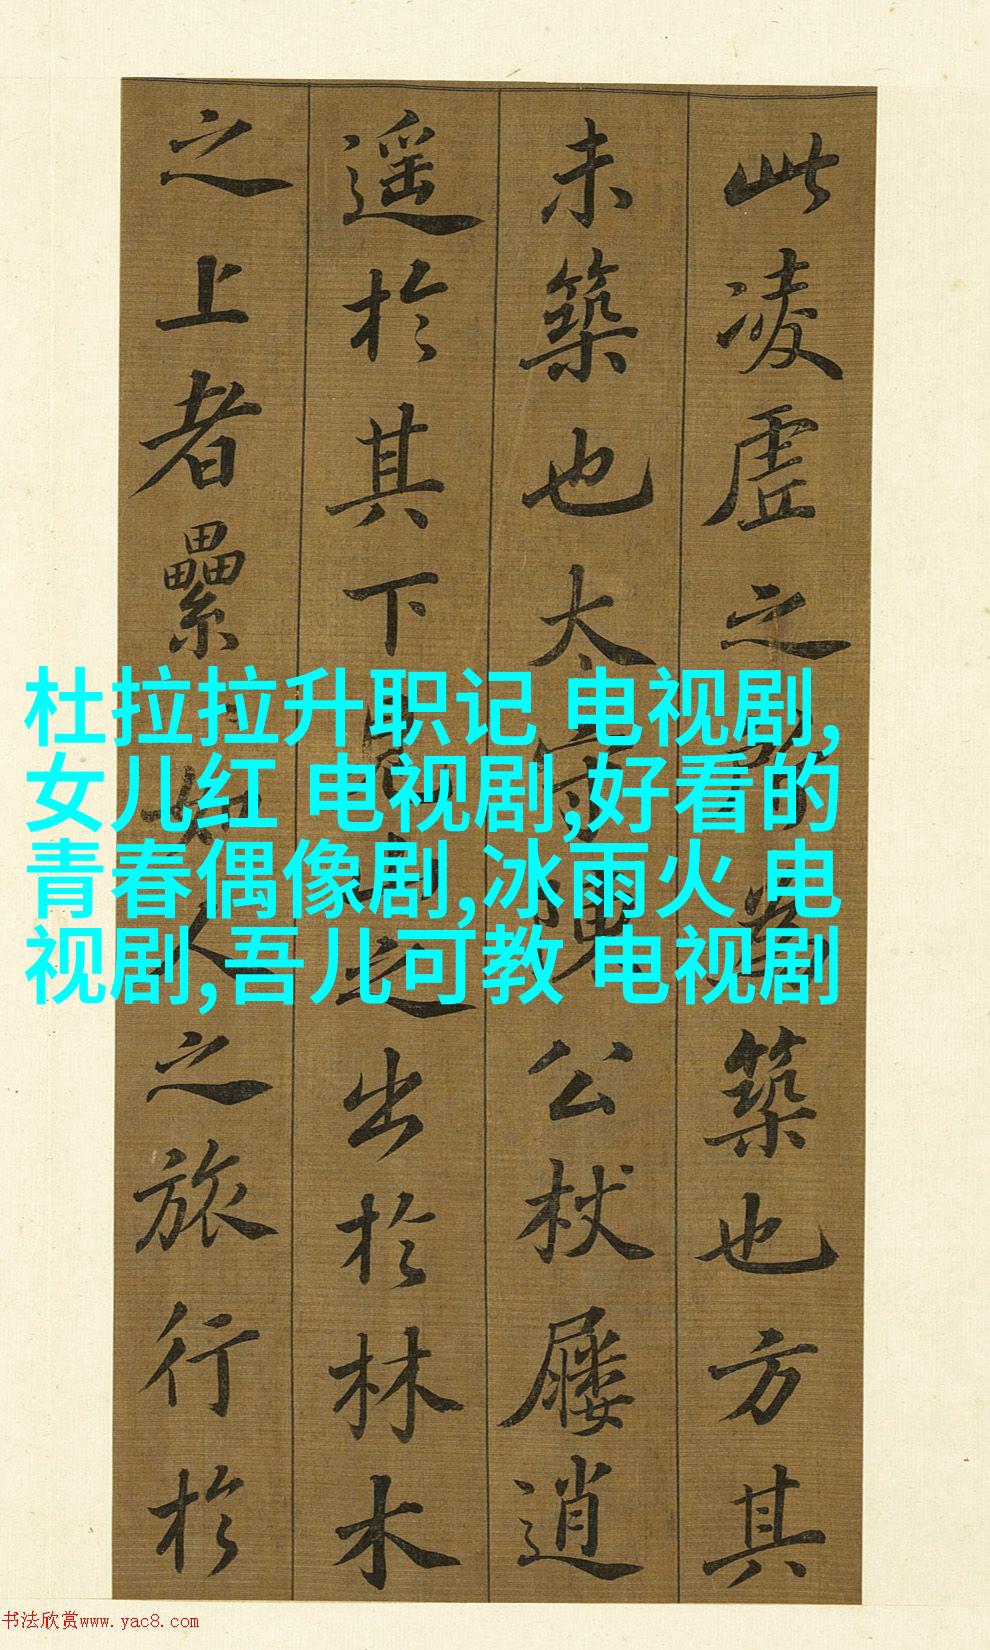 此凌虗之所為築也方其
未築也太守陳公杖屨逍
遥於其下見山之出於林木
之上者纍〻如人之旅行於
杜拉拉升职记 电视剧,
女儿红 电视剧,好看的
青春偶像剧,冰雨火 电
视剧,吾儿可教 电视剧
书法欣赏www.yac8.com